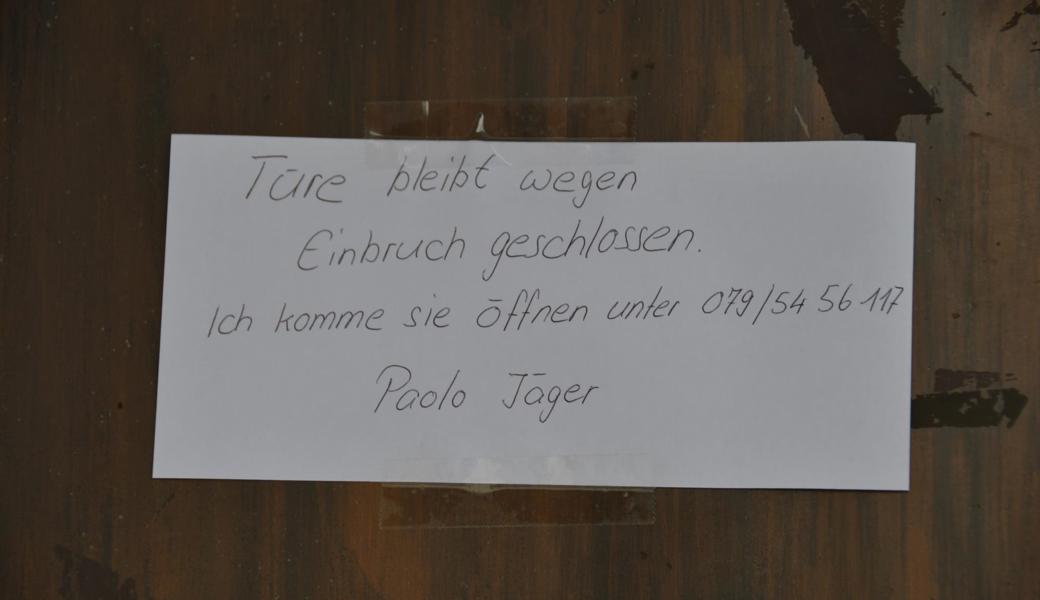 Türe bleibt wegen
Einbruch geschlossen.
Ich komme sie öffnen unter 079/54 56 117
Paolo Jäger